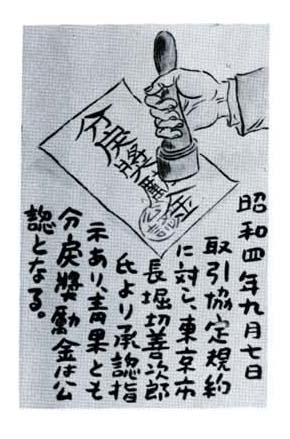 分戻奬勵金
昭和四年九月七日
取引協定規約
に対し、東京市
長堀切善次郎
氏より承認指
示あり、青果とも
分戻奬勵金は公
認となる。